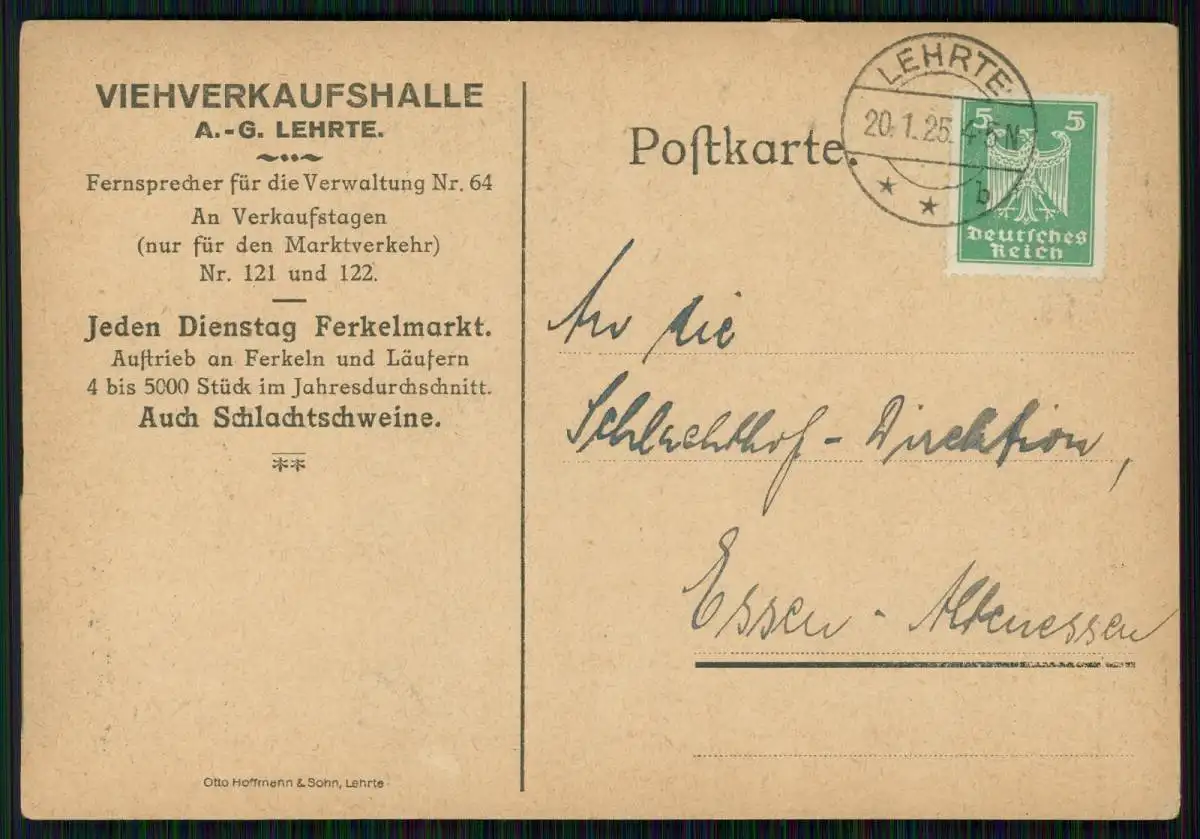 VIEHVERKAUFSHALLE
A.-G. LEHRTE.
Fernsprecher für die Verwaltung Nr. 64
An Verkaufstagen
(nur für den Marktverkehr)
Nr. 121 und 122.
Jeden Dienstag Ferkelmarkt.
Auftrieb an Ferkeln und Läufern
4 bis 5000 Stück im Jahresdurchschnitt.
Auch Schlachtschweine.
Otto Hoffmann & Sohn, Lehrte
Poſtkarte.
LEHRTE
20.1.25. 4-5 N
* * b
5 5
Deutſches
Reich
An die
Schlachthof-Direktion,
Essen-Altenessen